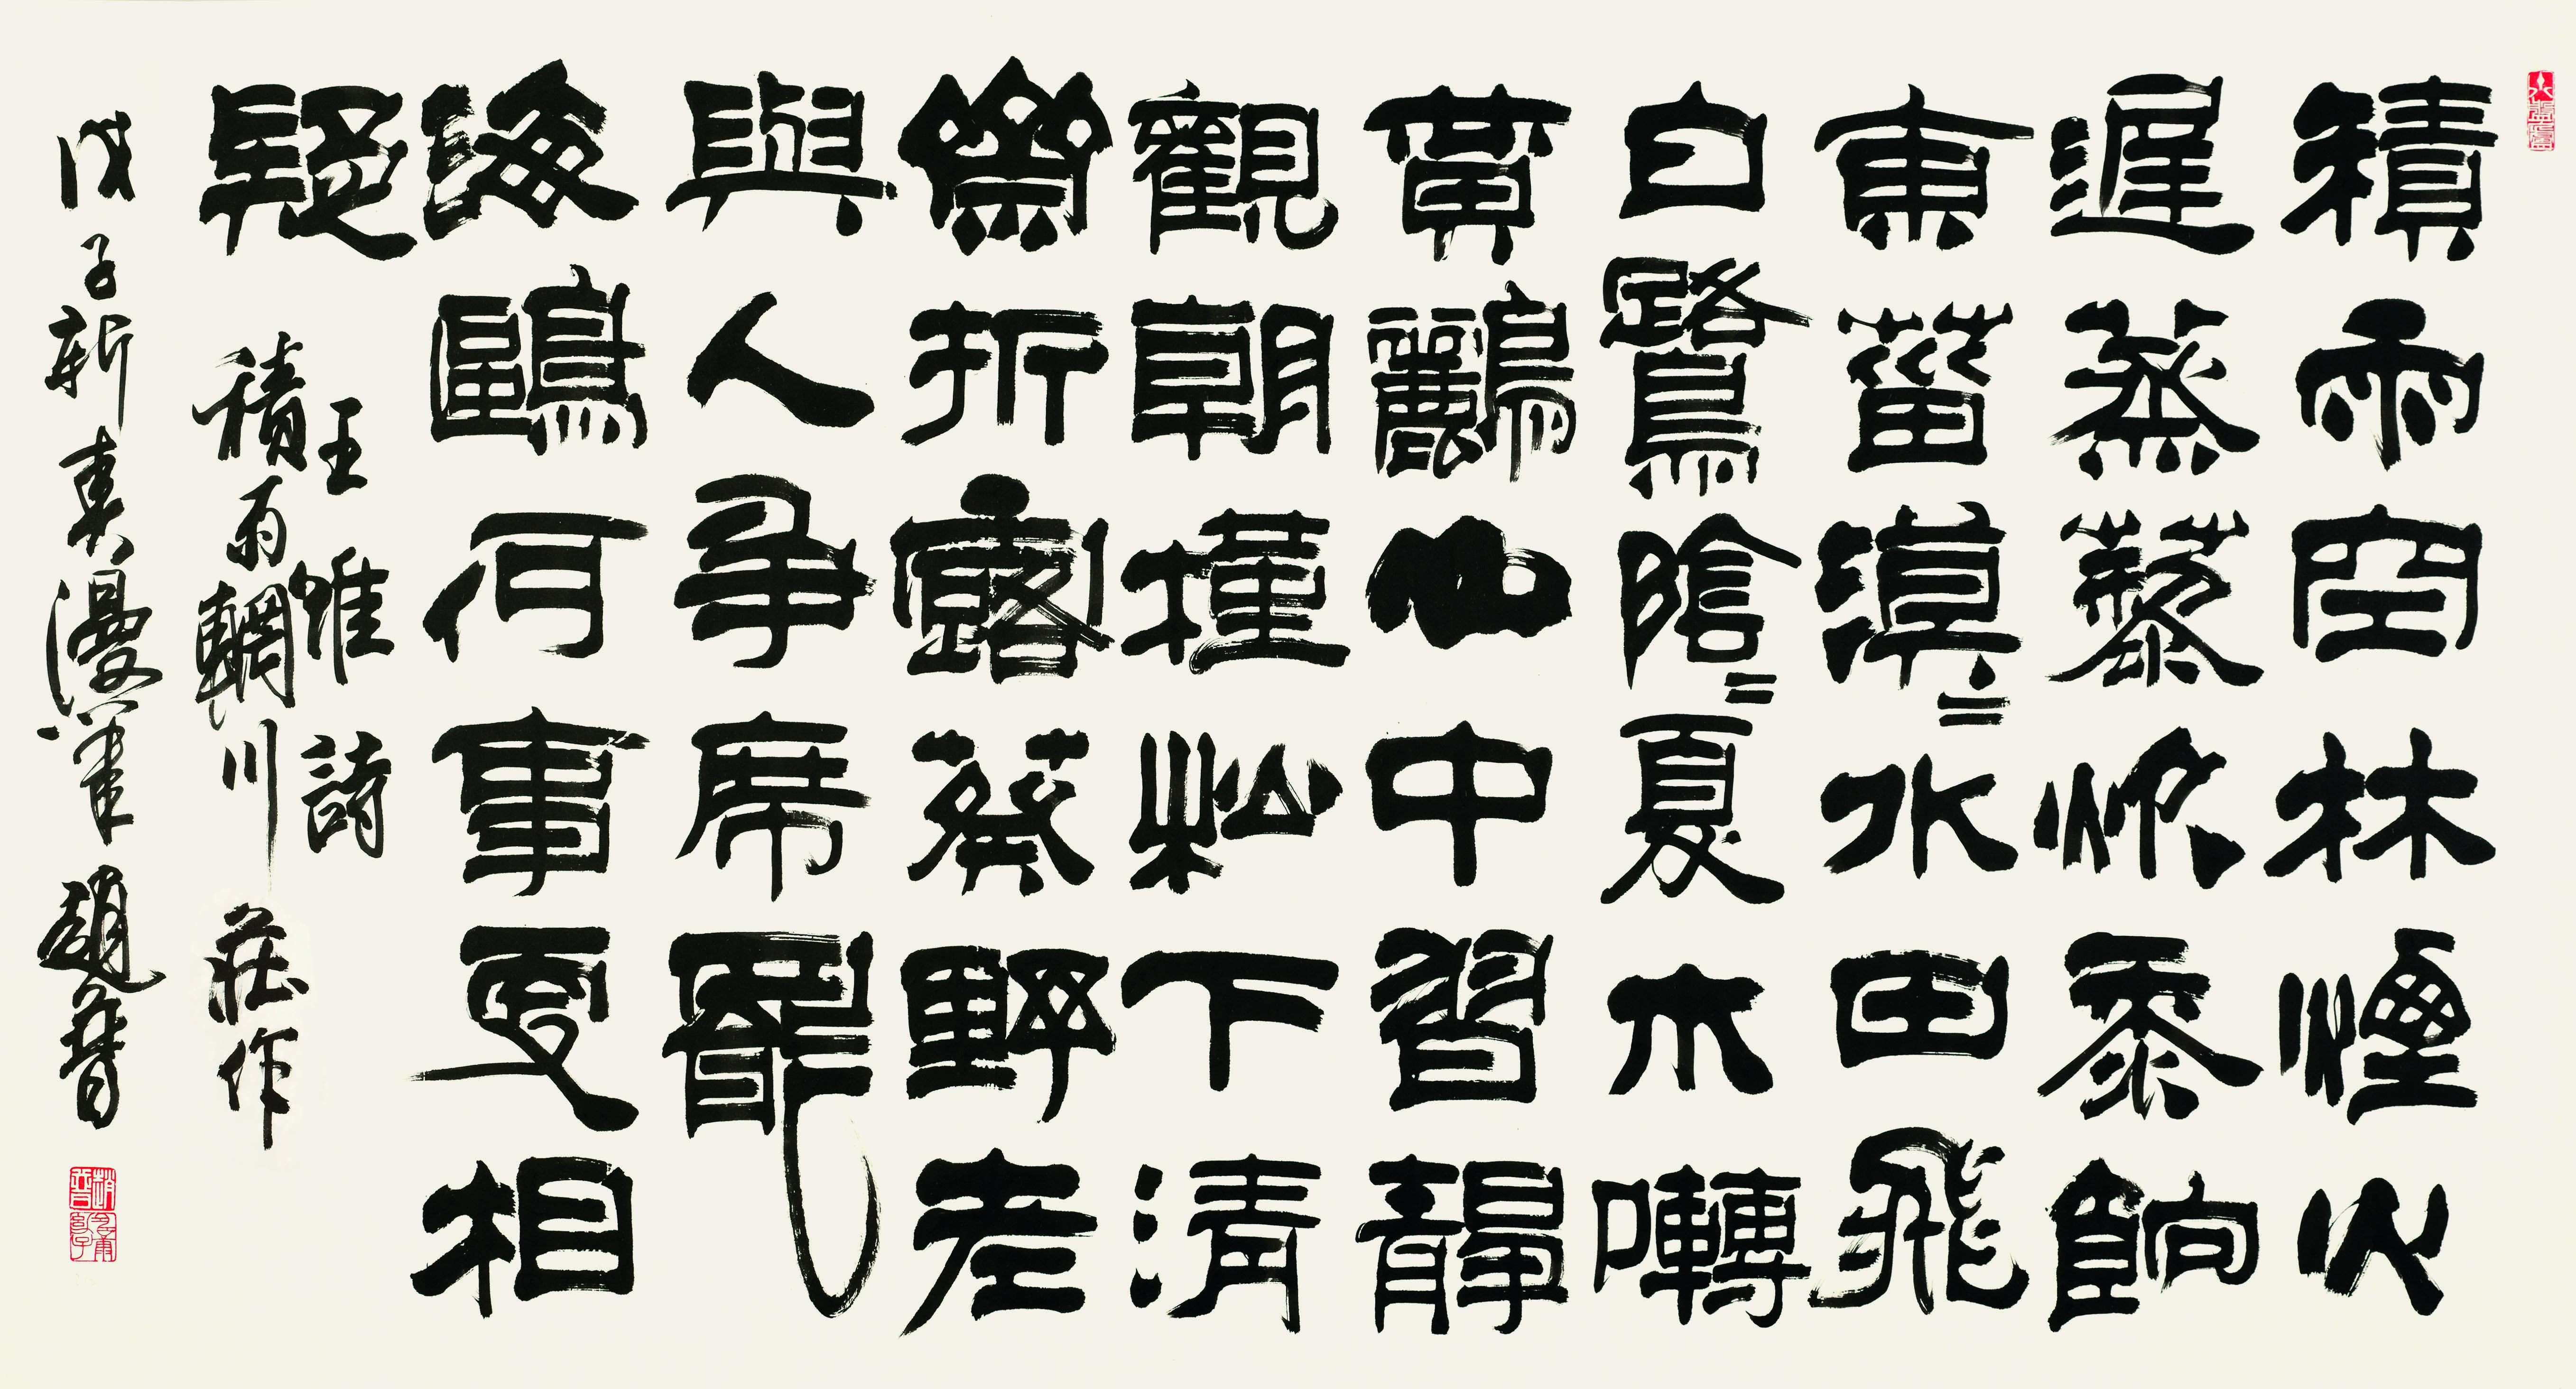 積雨空林煙火
遲蒸藜炊黍餉
東菑漠〻水田飛
白鷺陰〻夏木囀
黃鸝山中習靜
觀朝槿松下清
齋折露葵野老
與人爭席罷
海鷗何事更相
疑
王維詩
積雨輞川莊作
戊子新漫筆 趙普